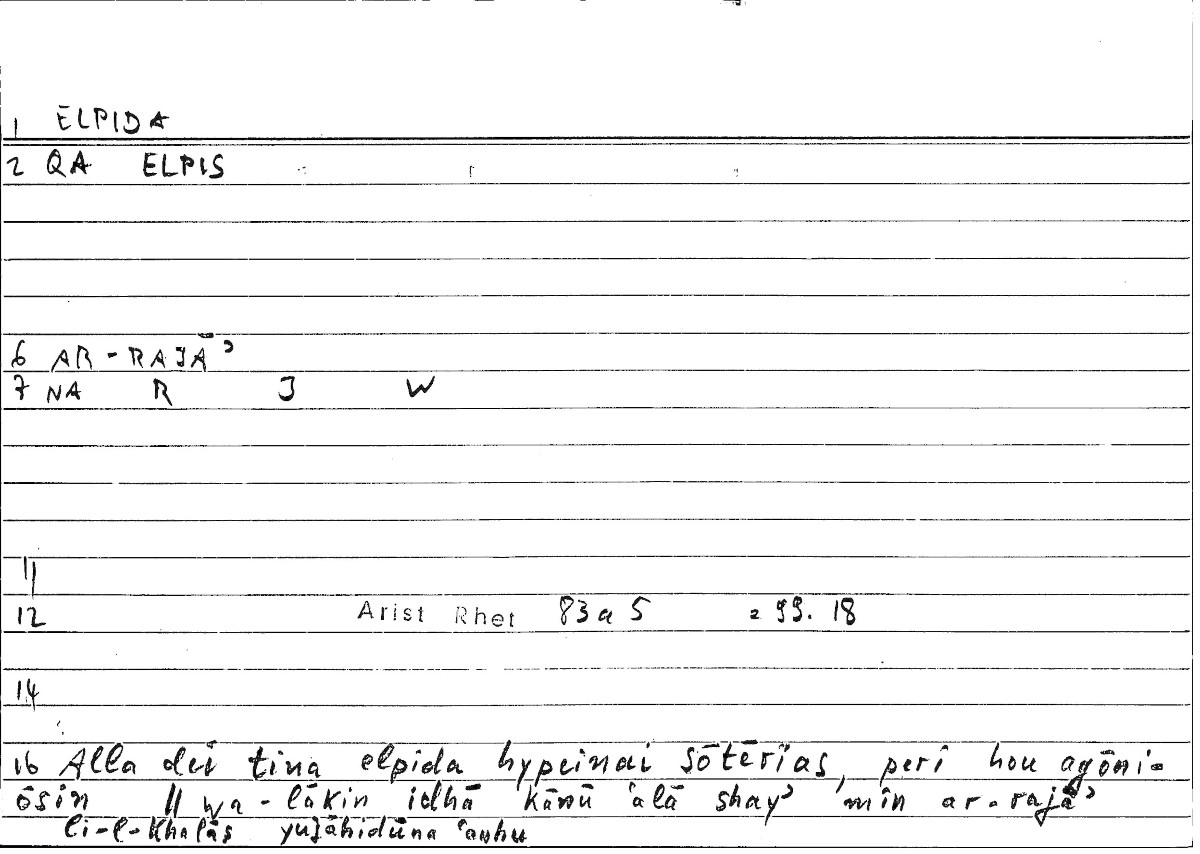 1 ELPIDA
2 QA ELPIS
6 AR-RAJĀʾ
7 NA R J W
11
12 Arist Rhet 83a5 = 99.18
14
16 Alla dei tina elpida hypeinai sōtērias, peri hou agōni-
ōsin || wa-lākin idhā kānū ʿalā shayʾ min ar-rajāʾ
li-l-khalāṣ yujāhidūna ʿanhu